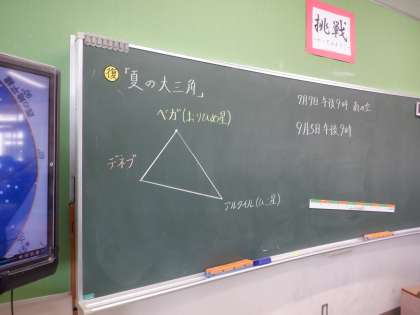 挑戦
復 「夏の大三角」
ベガ(おりひめ星)
デネブ
アルタイル(ひ 星)
7月7日 午後9時 の空
9月5日 午後9時